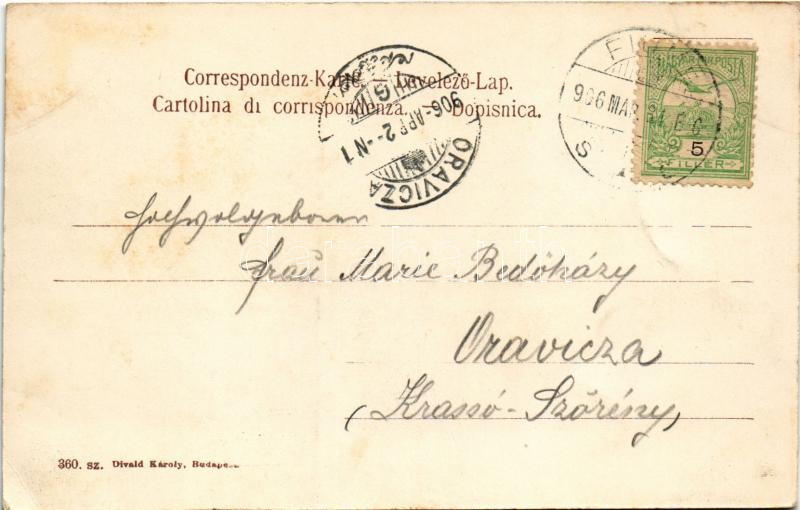 Correspondenz-Karte. – Levelező-Lap.
Cartolina di corrispondenza. – Dopisnica.
906 MAR 31
MAGYAR POSTA
5
FILLÉR
906 APR 2 -N 1
ORAVICZA
Hochwolgeboren
Frau Marie Bedőházy
Oravicza
(Krassó-Szörény)
360. SZ. Divald Károly, Budapest